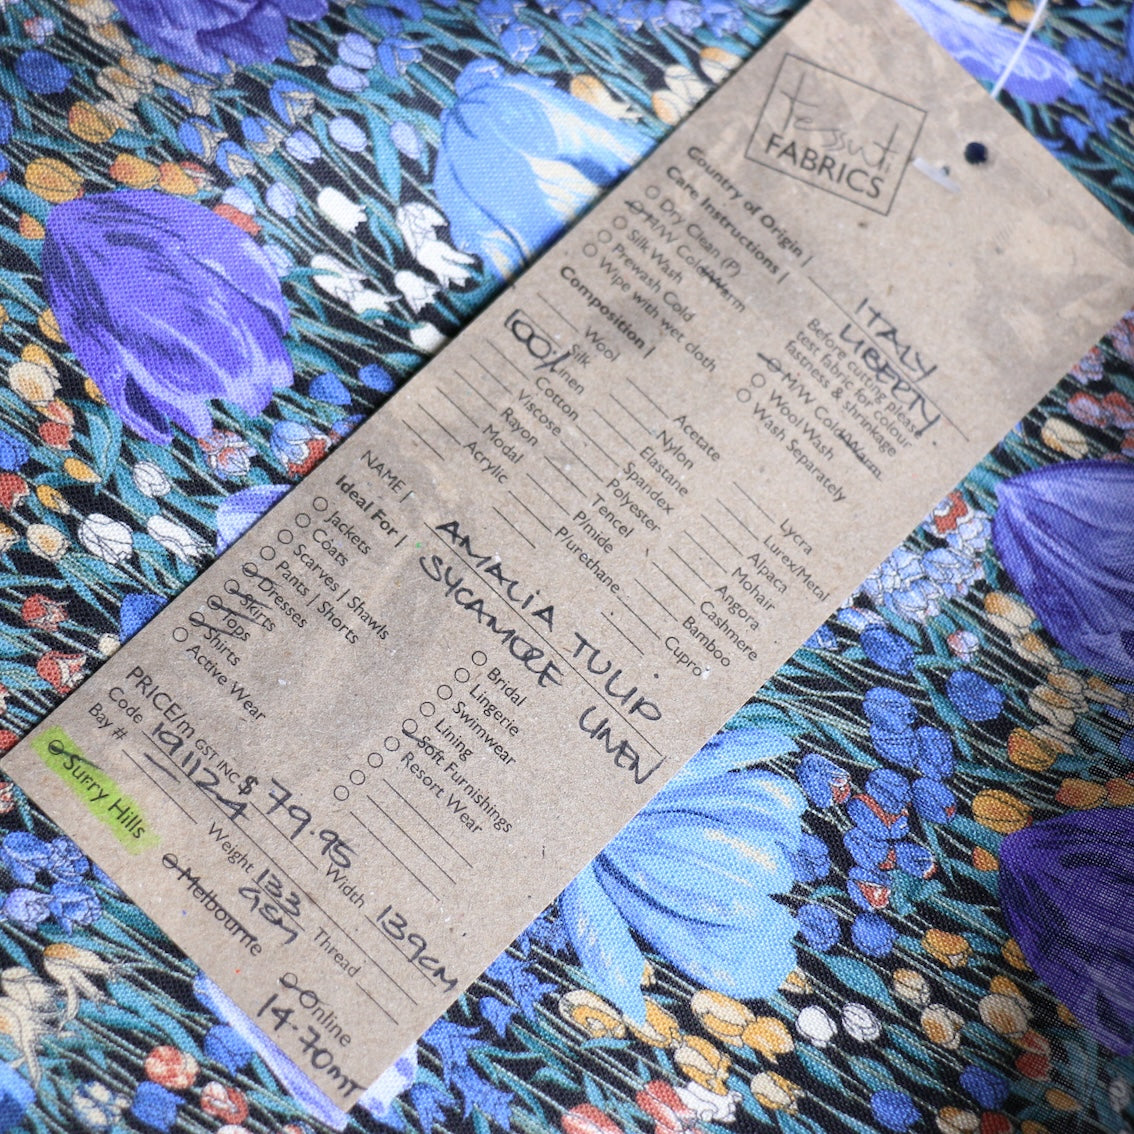 tessuti
FABRICS
Country of Origin | ITALY
LIBERTY.
Care Instructions |
Before cutting please
test fabric for colour
fastness & shrinkage
Dry Clean (P)
H/W Cold/Warm
Silk Wash
Prewash Cold
Wipe with wet cloth
M/W Cold/Warm
Wool Wash
Wash Separately
Composition |
Wool
Silk
100% Linen
Cotton
Viscose
Rayon
Modal
Acrylic
Acetate
Nylon
Elastane
Spandex
Polyester
Tencel
P/mide
P/urethane
Lycra
Lurex/Metal
Alpaca
Mohair
Angora
Cashmere
Bamboo
Cupro
NAME | AMALIA TULIP
SYCAMORE LINEN
Ideal For |
Jackets
Coats
Scarves | Shawls
Pants | Shorts
Dresses
Skirts
Tops
Shirts
Active Wear
Bridal
Lingerie
Swimwear
Lining
Soft Furnishings
Resort Wear
PRICE/m GST INC $ 79.95 Width 139cm
Code 191124 Weight 133 GSM Thread
Bay #
Surry Hills
Melbourne
Online
14.70MT